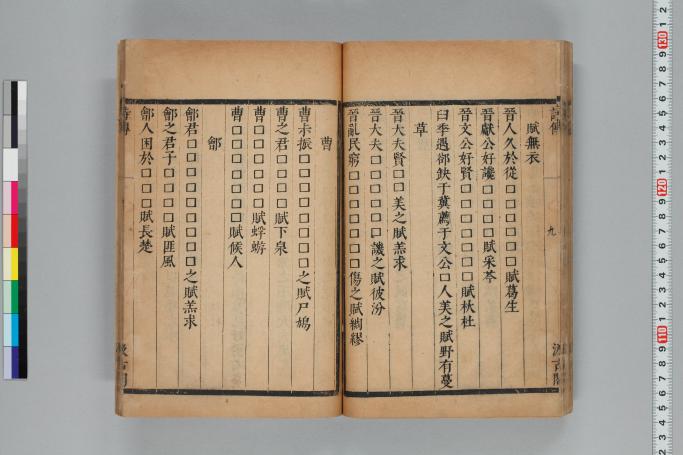 賦無衣
晉人久於從□□□□□□賦葛生
晉獻公好讒□□□□賦采苓
晉文公好賢□□□□□□賦杕杜
臼季遇郤缺于冀薦于文公□人美之賦野有蔓
草
晉大夫賢□□美之賦羔求
晉大夫□□□□□譏之賦彼汾
晉亂民窮□□□□□□□傷之賦綢繆
詩傳
九
汲古閣
曹
曹未振□□□□□□□□□之賦尸鳩
曹之君□□□□賦下泉
曹□□□□□賦蜉蝣
曹□□□□□□賦候人
鄶
鄶君□□□□□□□□□□之賦羔求
鄶之君子□□□□賦匪風
鄶人困於□□□□賦長楚
詩傳
汲古閣